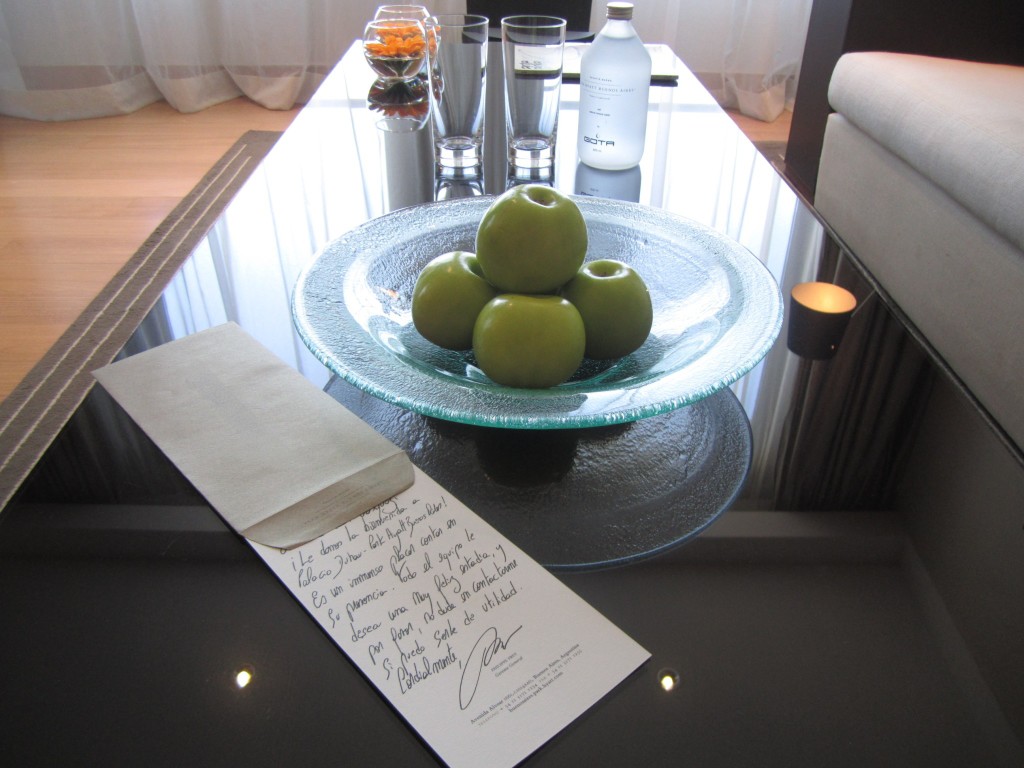 BUENOS AIRES
GOTA
¡Le damos la bienvenida a
Palacio Duhau - Park Hyatt Buenos Aires!
Es un inmenso placer contar con
su presencia. Todo el equipo le
desea una muy feliz estadía, y
por favor, no dude en contactarme
si puedo serle de utilidad.
Cordialmente,
Gerente General
Avenida Alvear 1661, C1014AAD, Buenos Aires, Argentina
buenosaires.park.hyatt.com